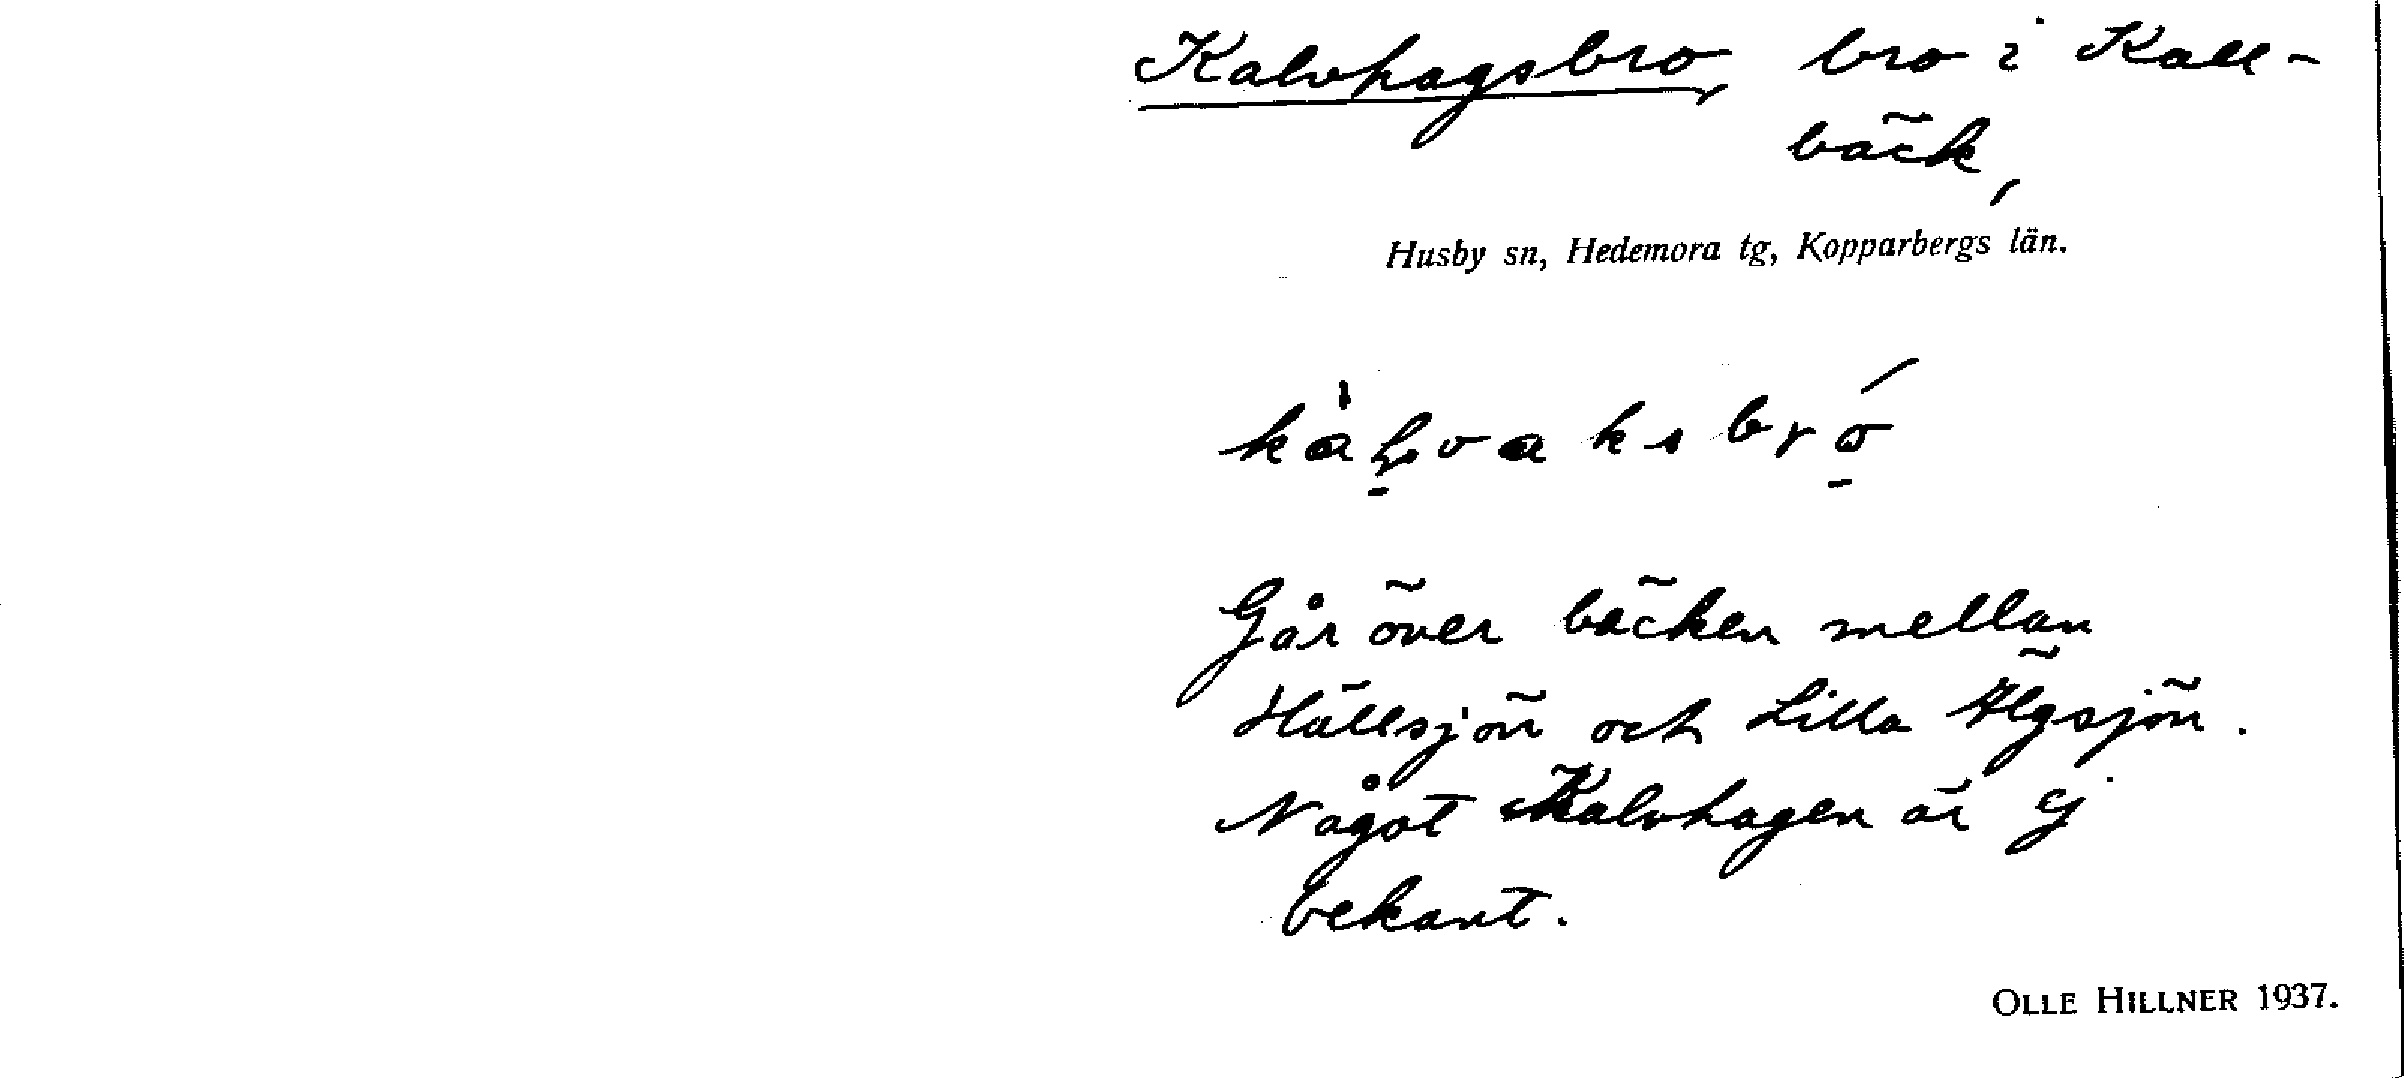 Kalvhagsbro, bro i Kall-
bäck,
Husby sn, Hedemora tg, Kopparbergs län.
Går över bäcken mellan
Hällsjön och Lilla Älgsjön.
Något Kalvhagen är ej
bekant.
OLLE HILLNER 1937.